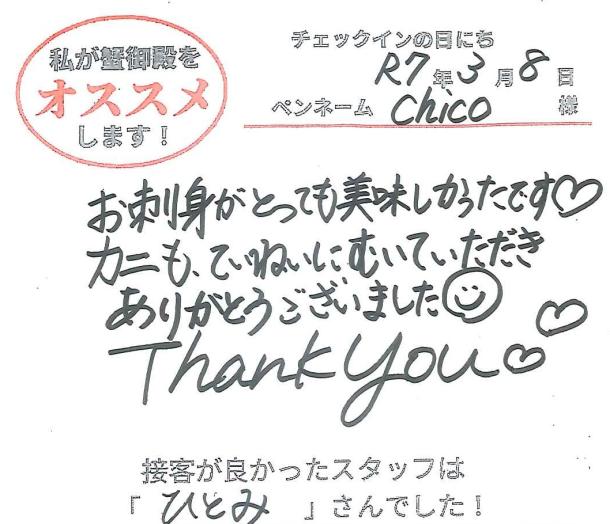 私が蟹御殿を
オススメ
します！
チェックインの日にち
R7年3月8日
ペンネーム Chico 様
お刺身がとっても美味しかったです♡
カニも、ていねいにむいていただき
ありがとうございました☺
Thank You♡♡
接客が良かったスタッフは
「 ひとみ 」さんでした！